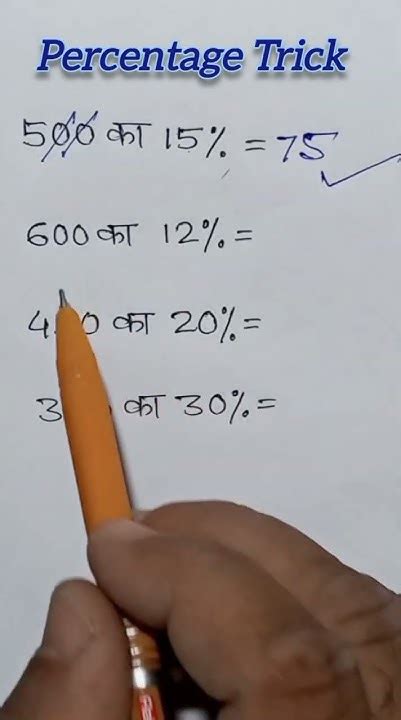 Percentage Trick
500 का 15% = 75
600 का 12% =
का 20% =
का 30% =